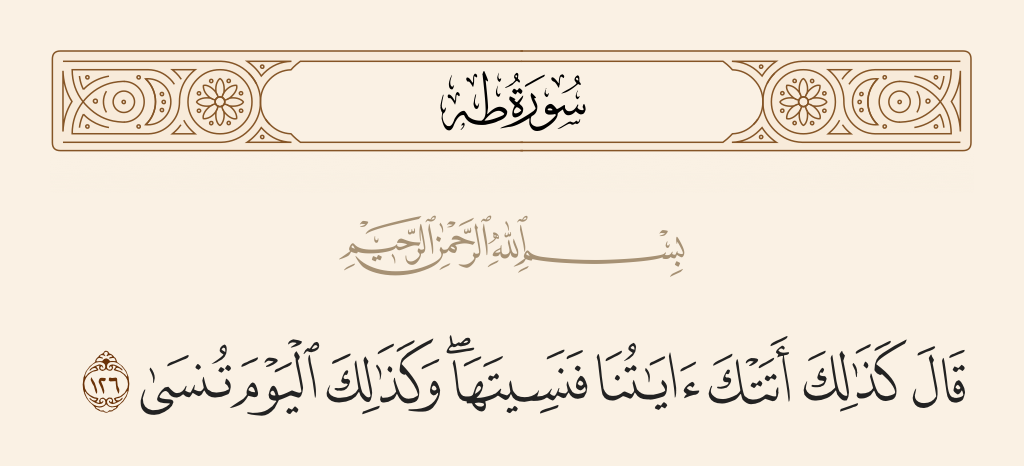 سُورَةُ طه
بِسْمِ ٱللَّهِ ٱلرَّحْمَٰنِ ٱلرَّحِيمِ
قَالَ كَذَٰلِكَ أَتَتْكَ ءَايَٰتُنَا فَنَسِيتَهَا ۖ وَكَذَٰلِكَ ٱلْيَوْمَ تُنسَىٰ ١٢٦